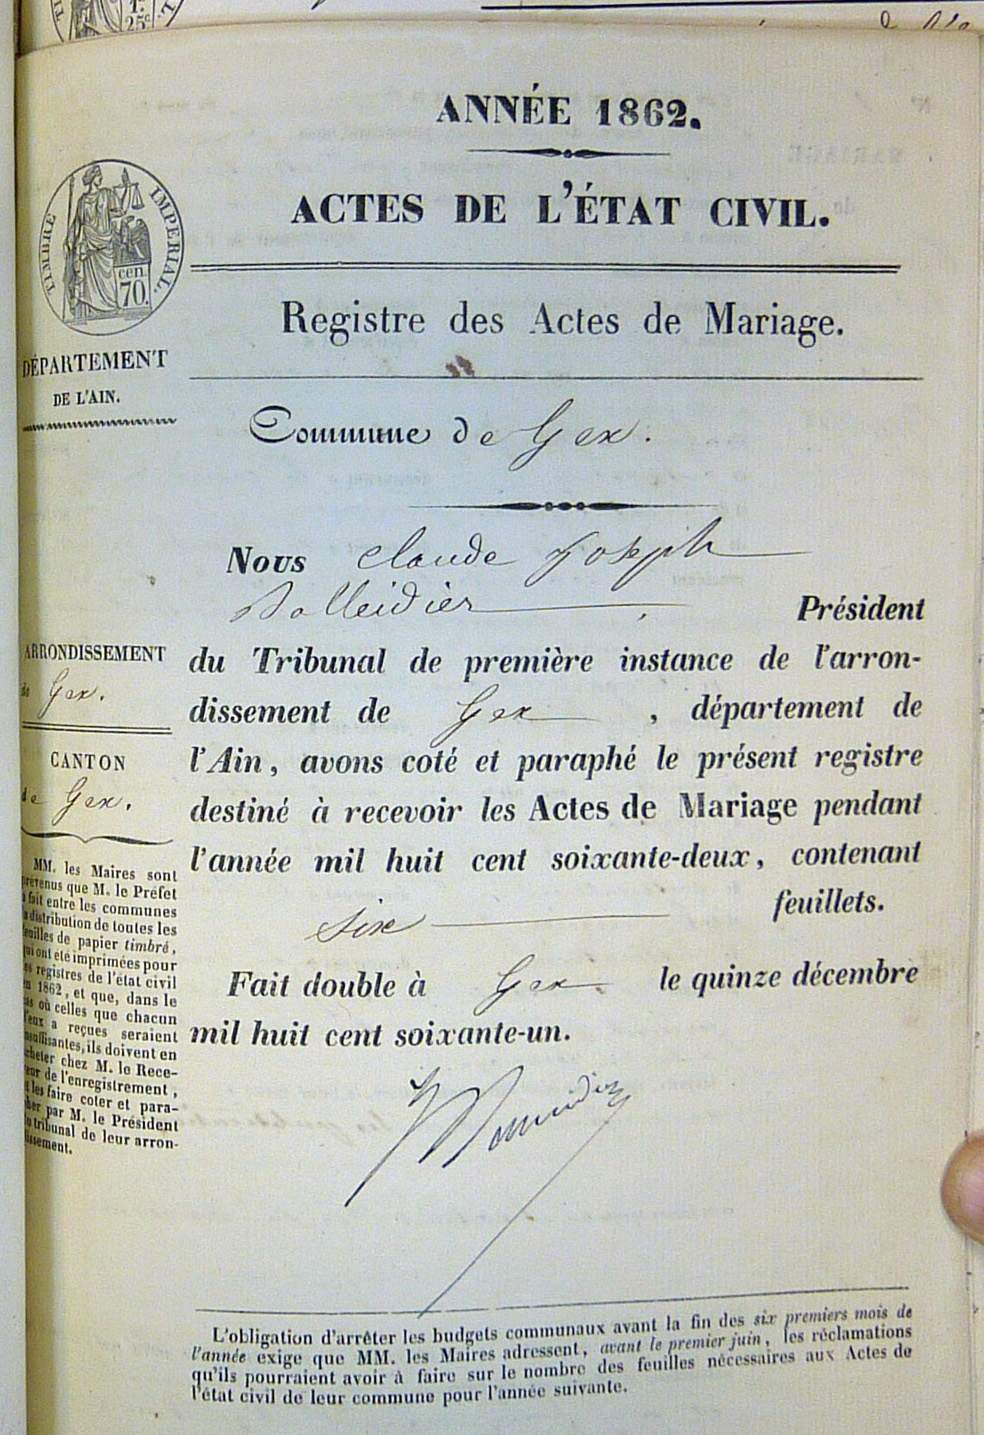 ANNÉE 1862.
ACTES DE L'ÉTAT CIVIL.
TIMBRE IMPERIAL.
cen.
70.
Registre des Actes de Mariage.
DÉPARTEMENT
DE L'AIN.
Commune de Gex.
Nous Claude Joseph
Président
ARRONDISSEMENT
de Gex.
du Tribunal de première instance de l'arron-
dissement de Gex, département de
l'Ain, avons coté et paraphé le présent registre
destiné à recevoir les Actes de Mariage pendant
l'année mil huit cent soixante-deux, contenant
six feuillets.
CANTON
de Gex.
Fait double à Gex le quinze décembre
mil huit cent soixante-un.
MM. les Maires sont
prévenus que M. le Préfet
a fait entre les communes
la distribution de toutes les
feuilles de papier timbré,
qui ont été imprimées pour
les registres de l'état civil
en 1862, et que, dans le
cas où celles que chacun
d'eux a reçues seraient
insuffisantes, ils doivent en
acheter chez M. le Rece-
veur de l'enregistrement,
et les faire coter et para-
pher par M. le Président
du tribunal de leur arron-
dissement.
L'obligation d'arrêter les budgets communaux avant la fin des six premiers mois de
l'année exige que MM. les Maires adressent, avant le premier juin, les réclamations
qu'ils pourraient avoir à faire sur le nombre des feuilles nécessaires aux Actes de
l'état civil de leur commune pour l'année suivante.